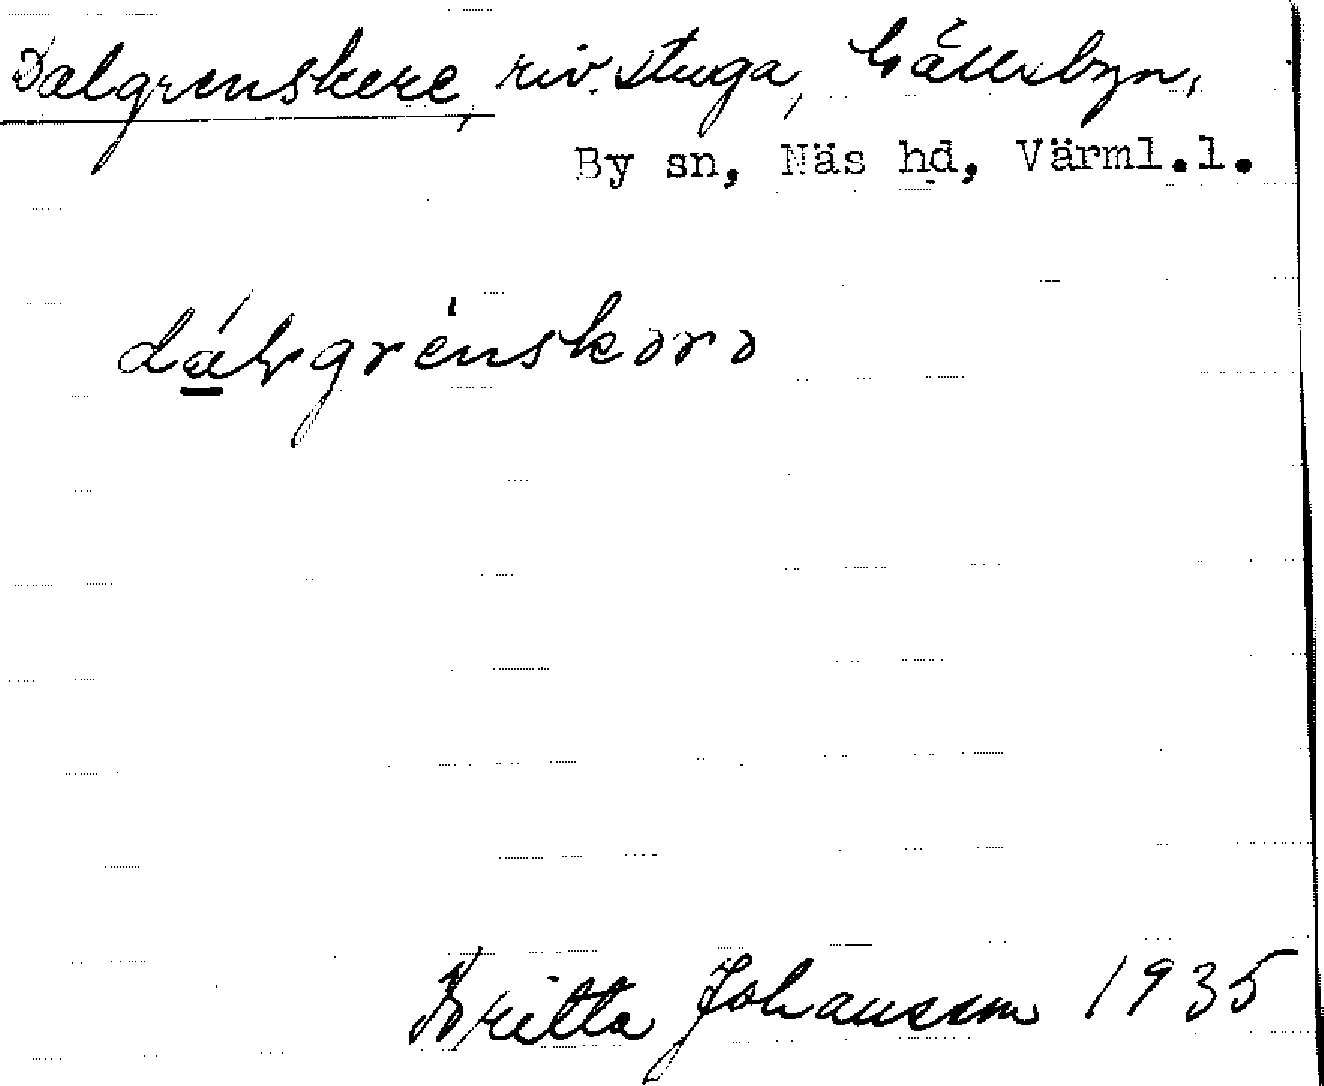 Dalgrenskere, riv. stuga, Gällsbyn,
By sn, Näs hd, Värml.l.
Britta Johansson 1935